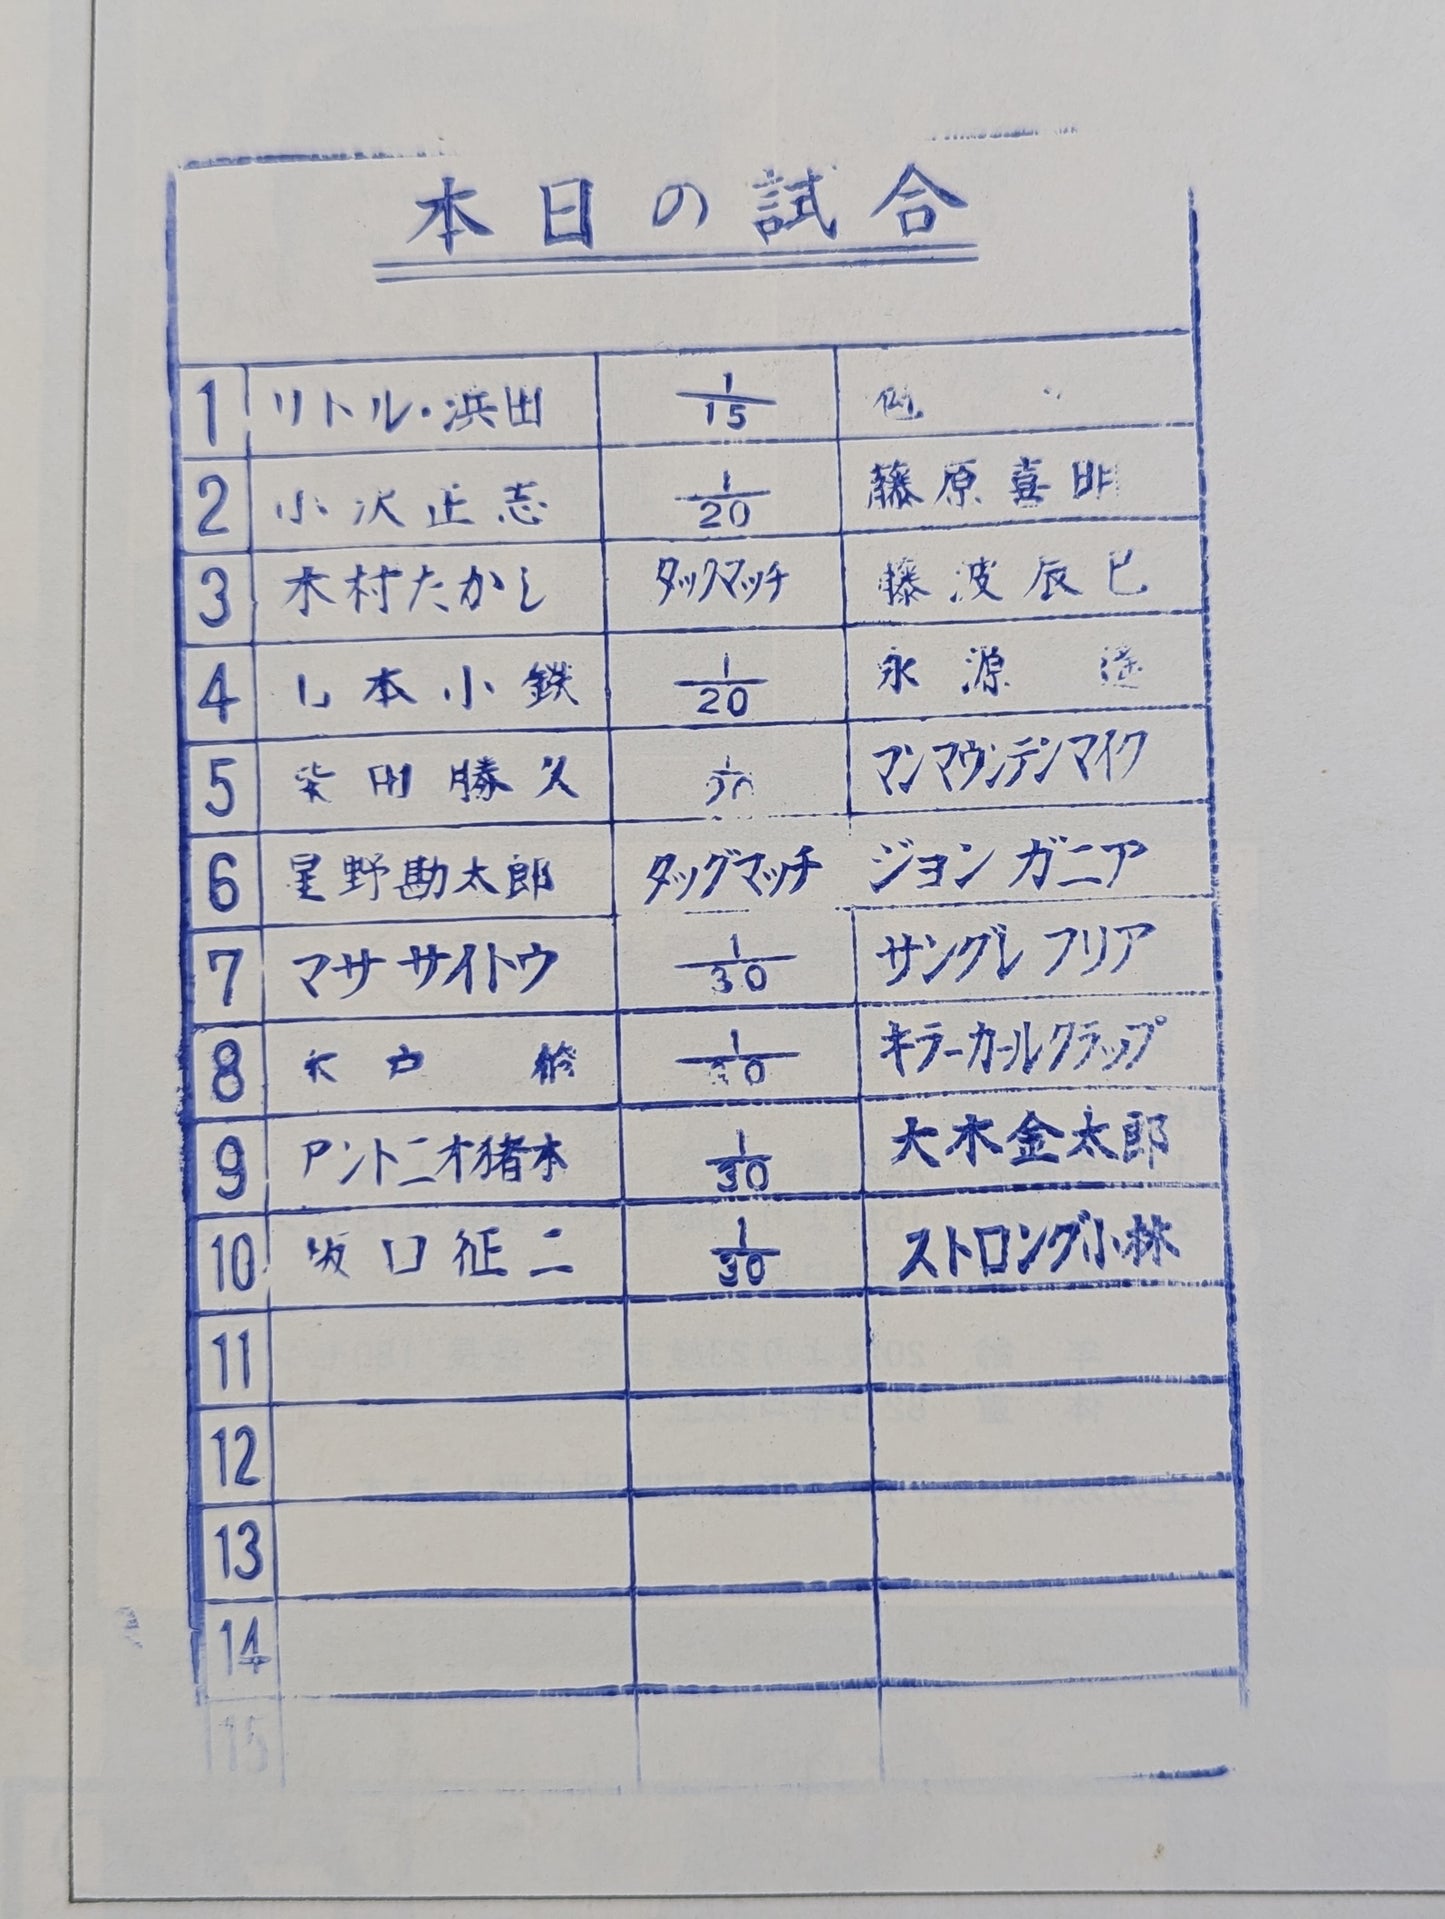 本日の試合
1 リトル・浜田 1/15
2 小沢正志 1/20 藤原喜明
3 木村たかし タッグマッチ 藤波辰巳
4 山本小鉄 1/20 永源 遥
5 柴田勝久 マンマウンテンマイク
6 星野勘太郎 タッグマッチ ジョン ガニア
7 マサ サイトウ 1/30 サングレ フリア
8 木戸 修 キラーカールクラップ
9 アントニオ猪木 1/30 大木金太郎
10 坂口征二 1/30 ストロング小林
11
12
13
14
15